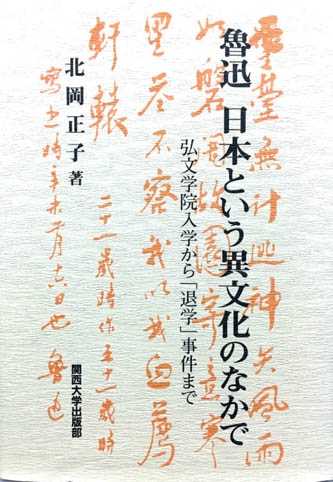 魯迅 日本という異文化のなかで
弘文学院入学から「退学」事件まで
北岡正子 著
関西大学出版部
靈臺無計逃神矢風雨
如磐闇故園寄意寒
星荃不察我以我血薦
軒轅 二十一歲時作五十一歲時
寫之時辛未二月十六日也 魯迅